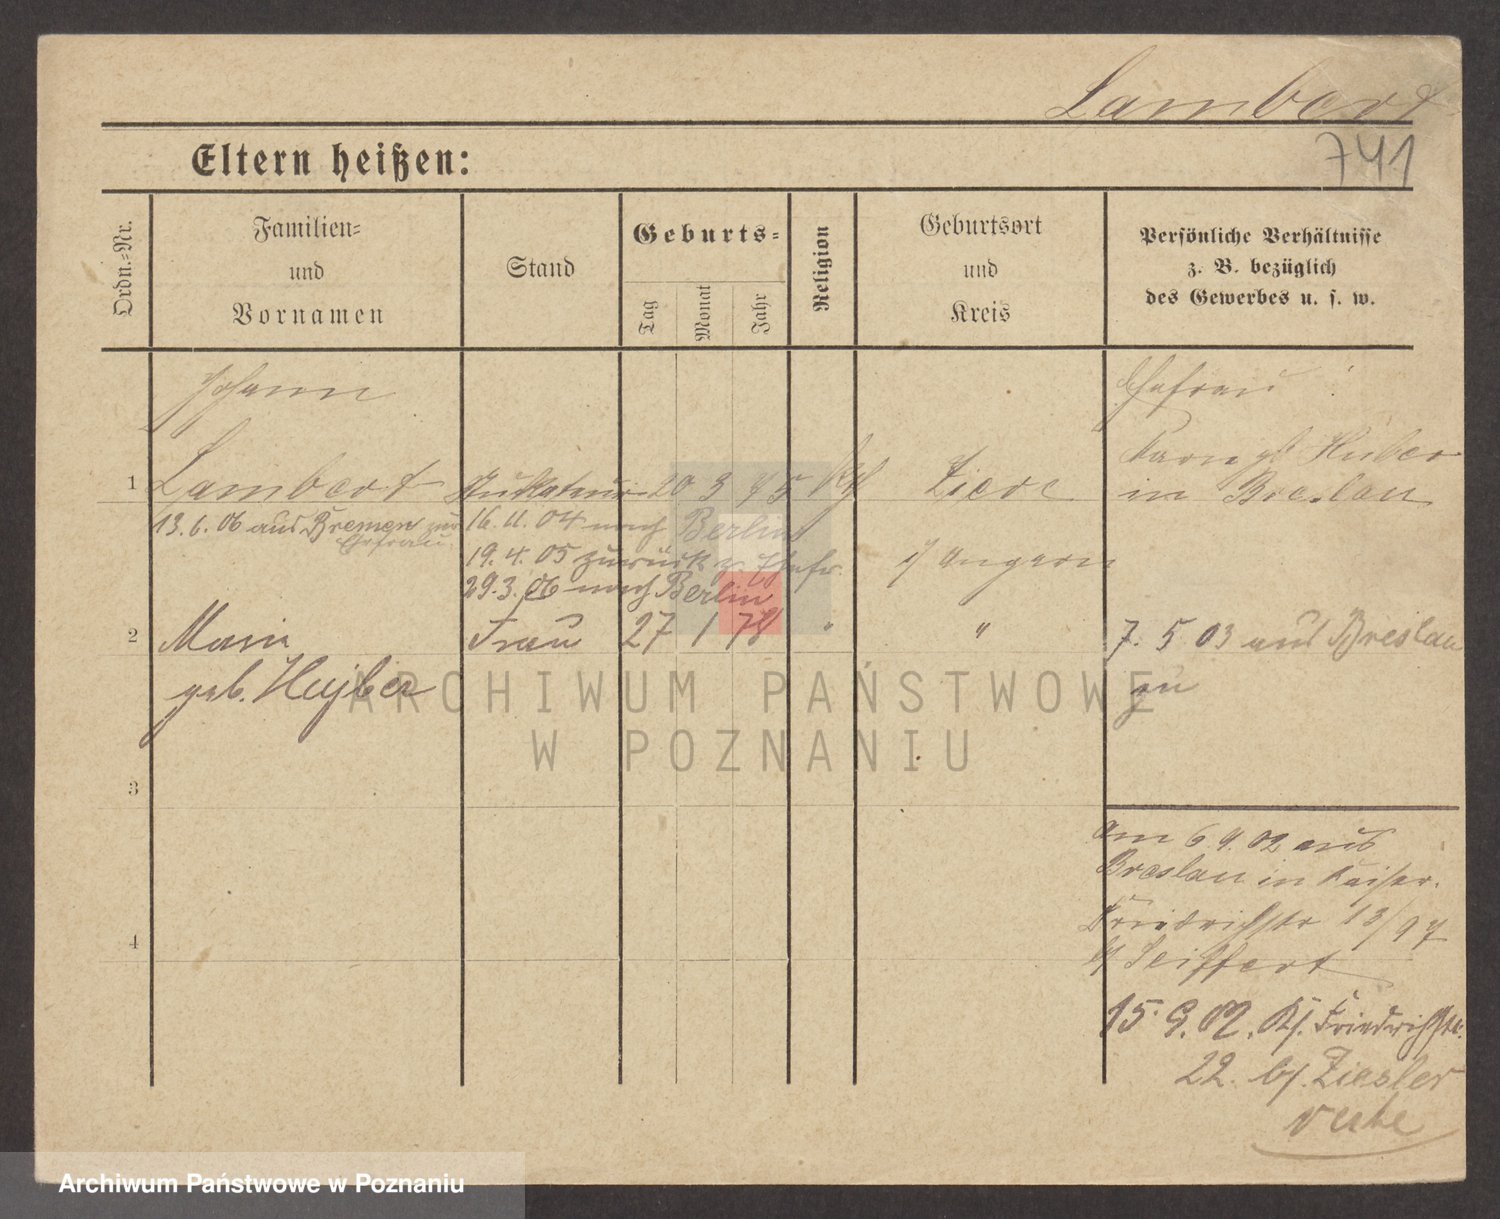 Lambert
741
Eltern heißen:
Ordn.-Nr.
Familien-
und
Vornamen
Stand
Geburts-
Tag
Monat
Jahr
Religion
Geburtsort
und
Kreis
Persönliche Verhältnisse
z. B. bezüglich
des Gewerbes u. s. w.
Johann
Ehefrau
geb. Huber
1 Lambert 20 3 75
in Breslau
13.6.06 aus Bremen zur
Ehefrau
16.11.04 nach Berlin
19.4.05 zurück z. Ehefr.
i/ Ungarn
29.3.06 nach Berlin
2 Frau 27 1 78 " "
7. 5 03 aus Breslau
geb.
zu
3
am 6 9.02 aus
Breslau in Kaiser.
4
Friedrichstr 13/97
b/ Seiffert
15. 9. 02. Ks. Friedrichstr.
22. b/. Ziesler
ARCHIWUM PAŃSTWOWE
W POZNANIU
Archiwum Państwowe w Poznaniu